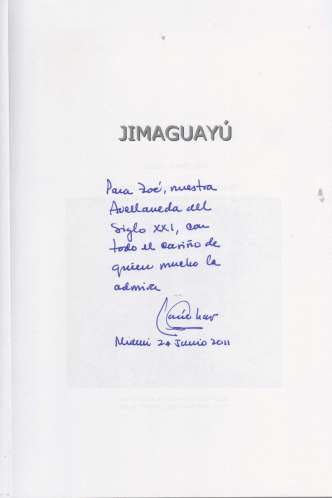 JIMAGUAYÚ
Para Zoé, nuestra
Avellaneda del
Siglo XXI, con
todo el cariño de
quien mucho la
admira
Miami 20 Junio 2011